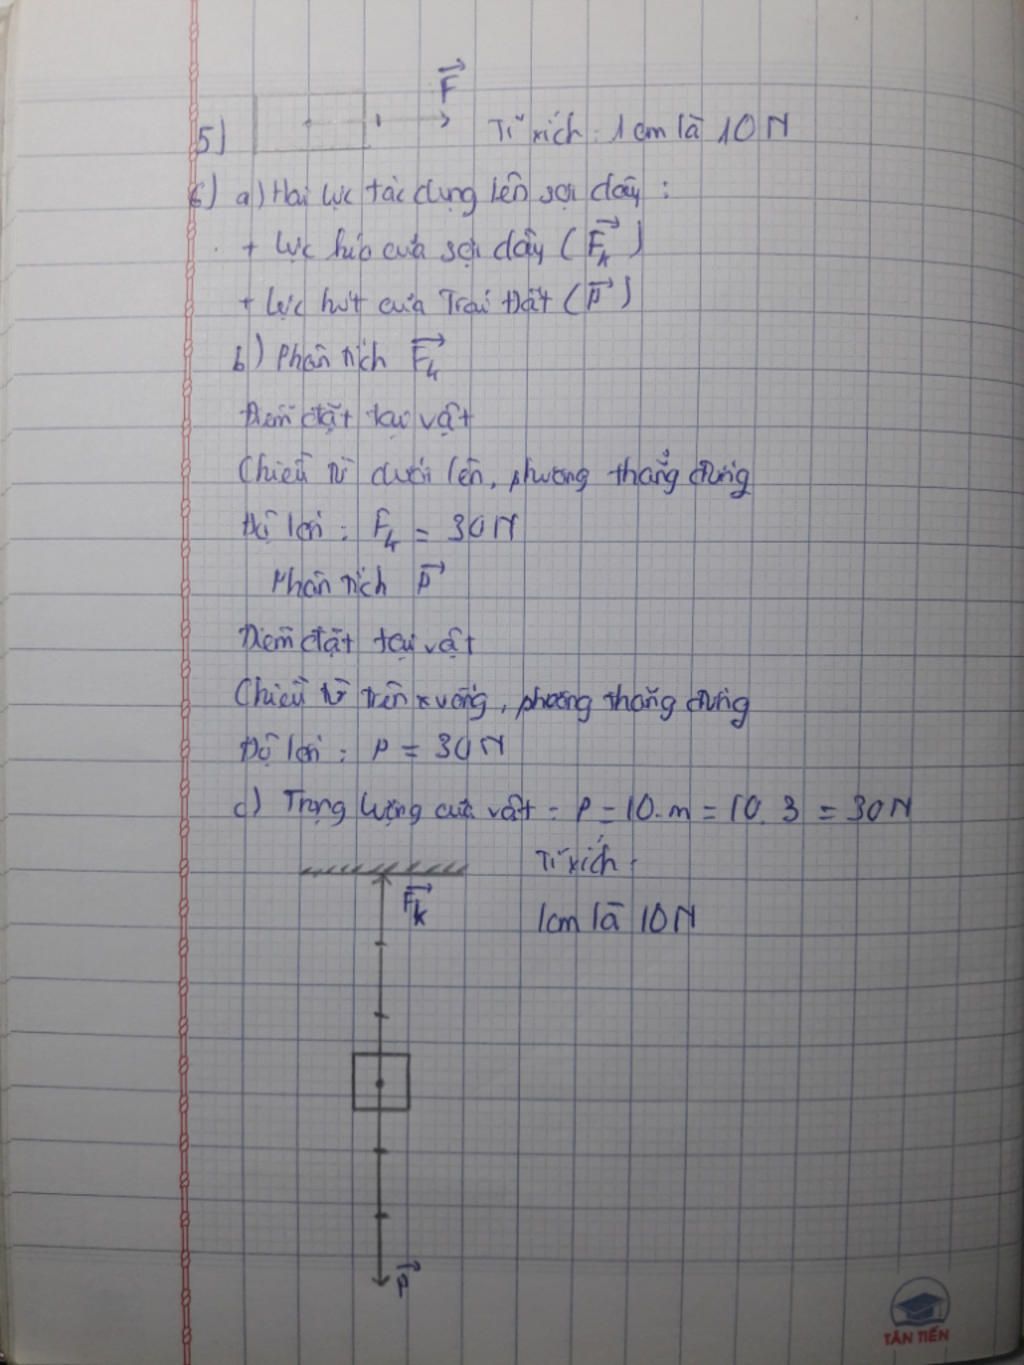 F
5) Tỉ xích: 1cm là 10N
6) a) Hai lực tác dụng lên sợi dây:
+ Lực kéo của sợi dây (Fk)
+ Lực hút của Trái Đất (P)
b) Phân tích Fk
Điểm đặt tại vật
Chiều từ dưới lên, phương thẳng đứng
Độ lớn: Fk = 30N
Phân tích P
Điểm đặt tại vật
Chiều từ trên xuống, phương thẳng đứng
Độ lớn: P = 30N
c) Trọng lượng của vật: P = 10.m = 10.3 = 30N
Tỉ xích:
Fk
1cm là 10N
P
TÂN TIẾN